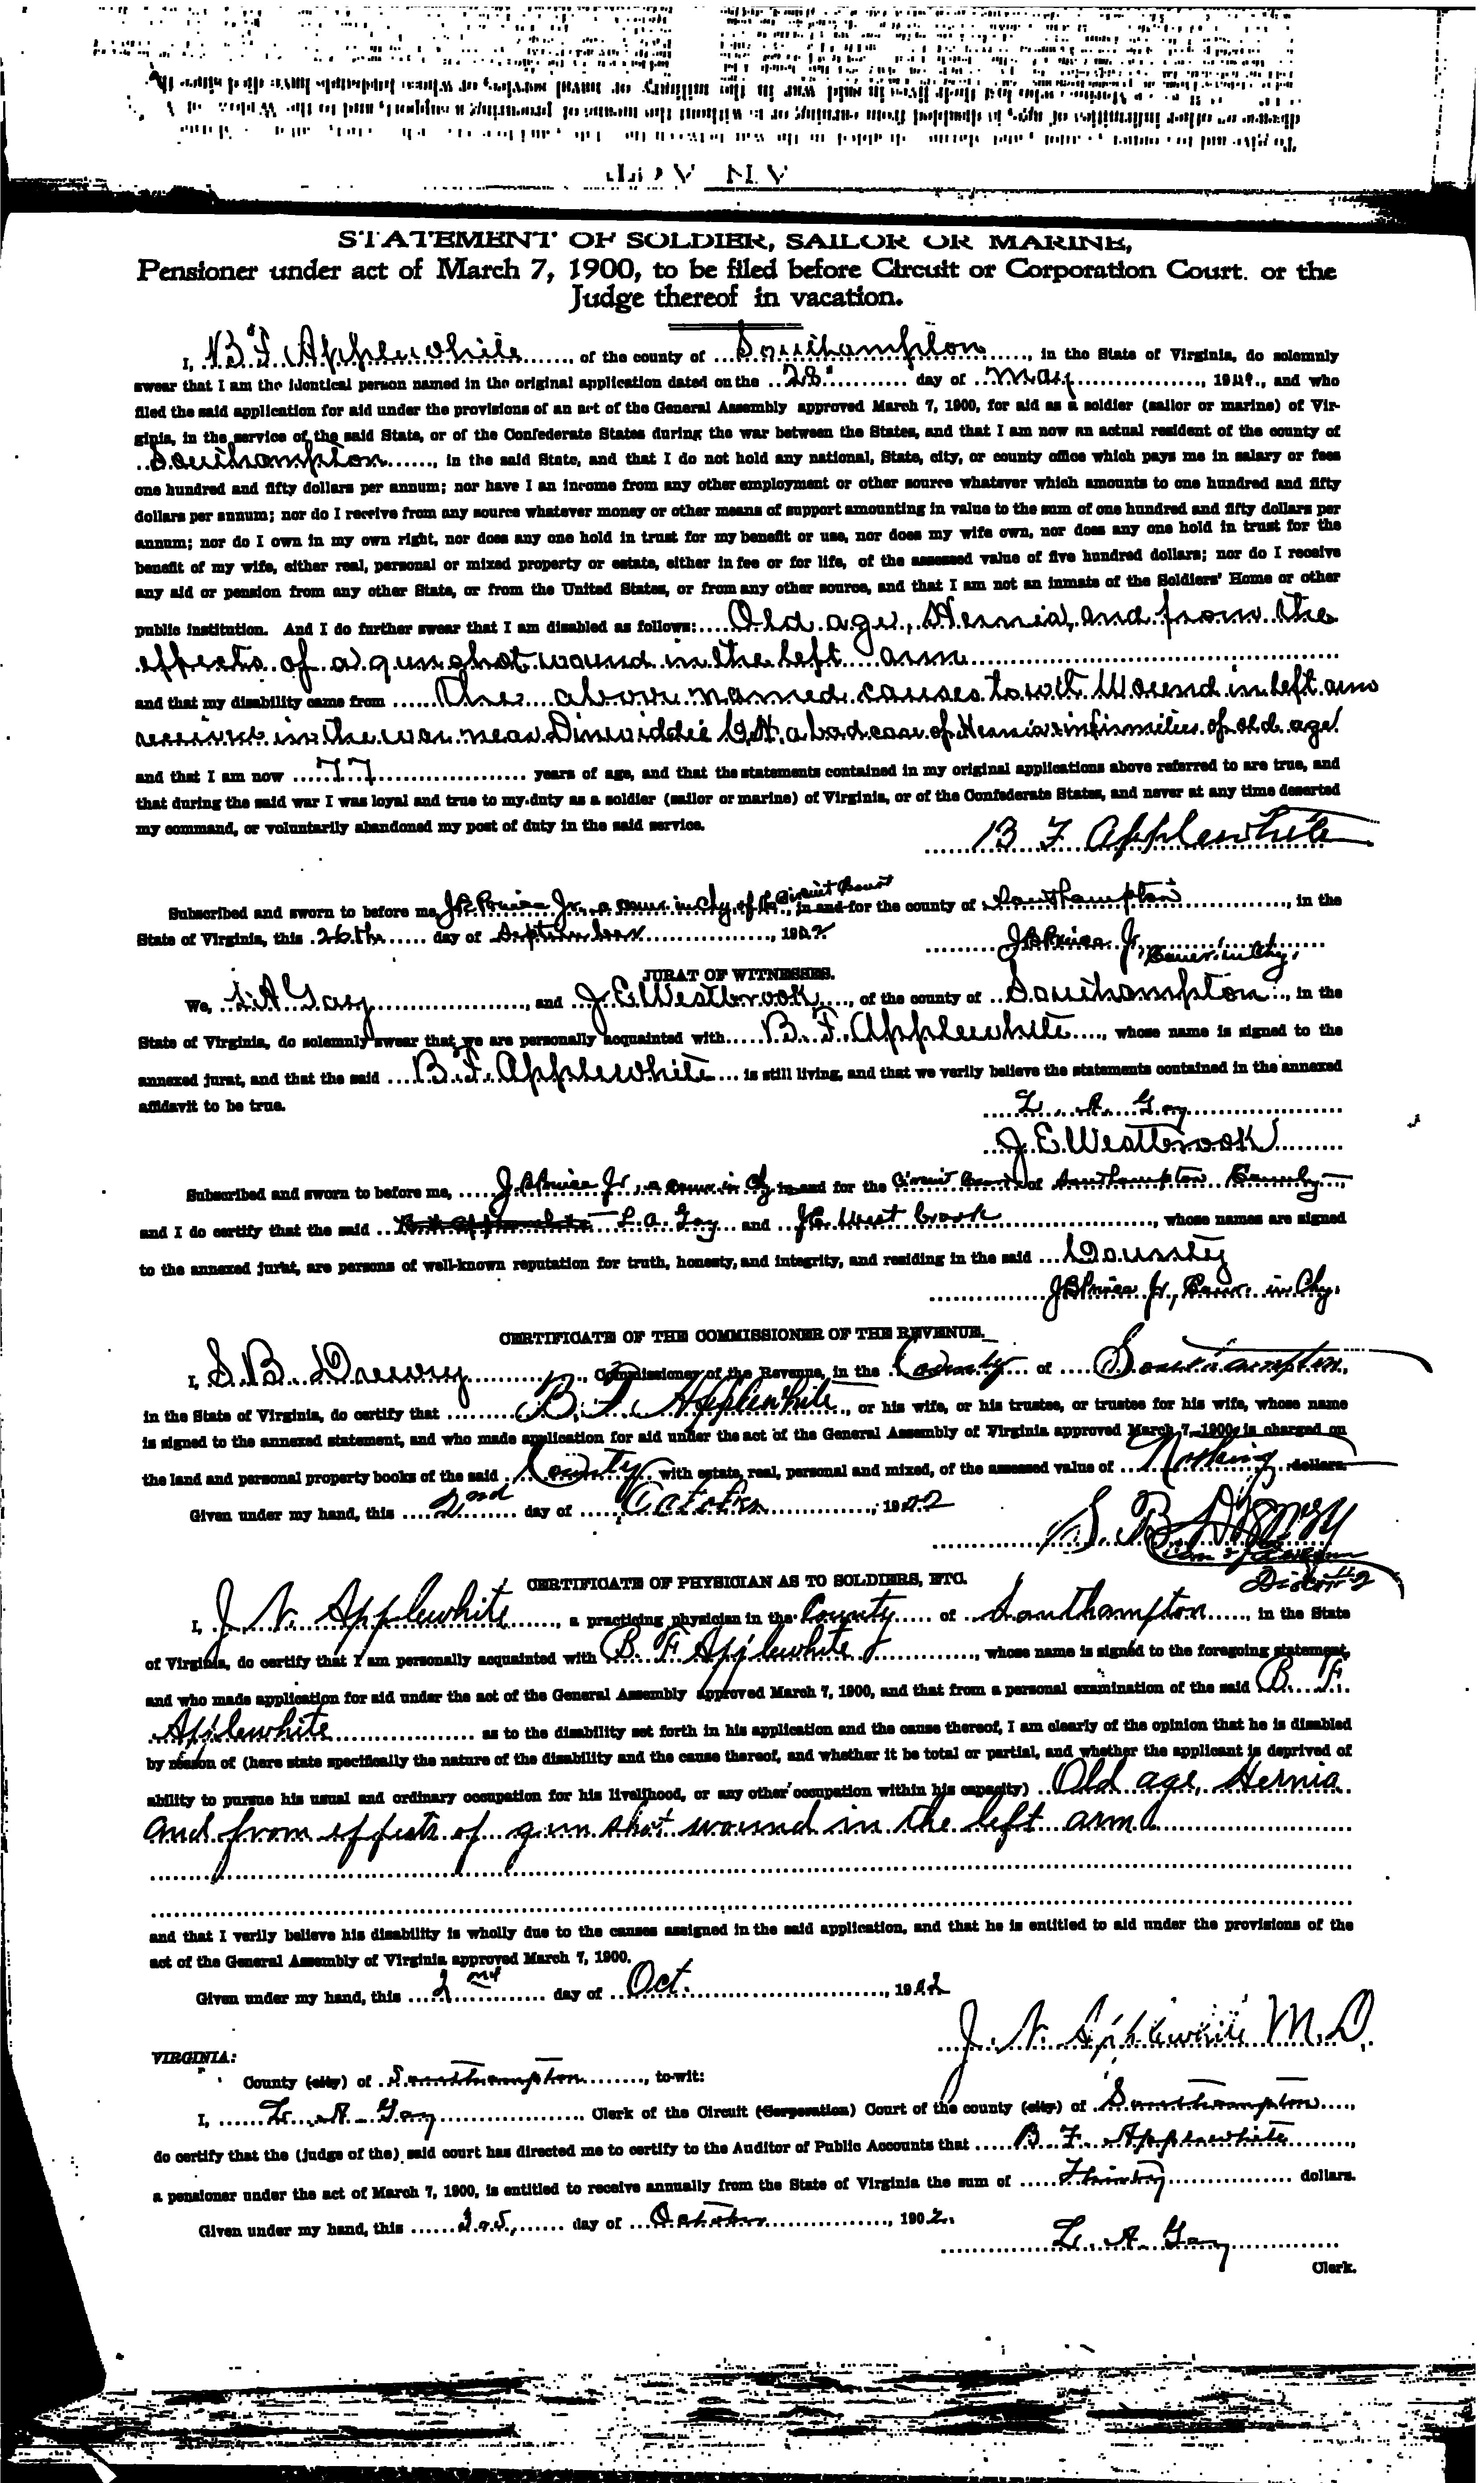 STATEMENT OF SOLDIER, SAILOR OR MARINE,
Pensioner under act of March 7, 1900, to be filed before Circuit or Corporation Court. or the
Judge thereof in vacation.
I, B F Applewhite, of the county of Southampton, in the State of Virginia, do solemnly
swear that I am the identical person named in the original application dated on the 28 day of May, 19, and who
filed the said application for aid under the provisions of an act of the General Assembly approved March 7, 1900, for aid as a soldier (sailor or marine) of Vir-
ginia, in the service of the said State, or of the Confederate States during the war between the States, and that I am now an actual resident of the county of
Southampton, in the said State, and that I do not hold any national, State, city, or county office which pays me in salary or fees
one hundred and fifty dollars per annum; nor have I an income from any other employment or other source whatever which amounts to one hundred and fifty
dollars per annum; nor do I receive from any source whatever money or other means of support amounting in value to the sum of one hundred and fifty dollars per
annum; nor do I own in my own right, nor does any one hold in trust for my benefit or use, nor does my wife own, nor does any one hold in trust for the
benefit of my wife, either real, personal or mixed property or estate, either in fee or for life, of the assessed value of five hundred dollars; nor do I receive
any aid or pension from any other State, or from the United States, or from any other source, and that I am not an inmate of the Soldiers' Home or other
public institution. And I do further swear that I am disabled as follows: Old age, Hernia, and from the
effects of a gun shot wound in the left arm
and that my disability came from the above named causes to wit Wound in left arm
receive in the war near Dinwiddie C.H. a bad case of Hernia & infirmities of old age
and that I am now 77 years of age, and that the statements contained in my original applications above referred to are true, and
that during the said war I was loyal and true to my duty as a soldier (sailor or marine) of Virginia, or of the Confederate States, and never at any time deserted
my command, or voluntarily abandoned my post of duty in the said service.
B F Applewhite
Subscribed and sworn to before me, J B Prince Jr., a Comr in Chy. of the Circuit Court, in and for the county of Southampton, in the
State of Virginia, this 26th day of September, 1902
J B Prince Jr, Comr. in Chy.
JURAT OF WITNESSES.
We, L A Gay, and J. E. Westbrook, of the county of Southampton, in the
State of Virginia, do solemnly swear that we are personally acquainted with B. F. Applewhite, whose name is signed to the
annexed jurat, and that the said B. F. Applewhite is still living, and that we verily believe the statements contained in the annexed
affidavit to be true.
L. A. Gay
J. E. Westbrook
Subscribed and sworn to before me, J B Prince Jr, a Comr in Chy in and for the Circuit Court of Southampton County
and I do certify that the said L. A. Gay and J E Westbrook, whose names are signed
to the annexed jurat, are persons of well-known reputation for truth, honesty, and integrity, and residing in the said County
J B Prince Jr, Comr. in Chy.
CERTIFICATE OF THE COMMISSIONER OF THE REVENUE.
I, S. B. Drewry, Commissioner of the Revenue, in the County of Southampton,
in the State of Virginia, do certify that B. F. Applewhite, or his wife, or his trustee, or trustee for his wife, whose name
is signed to the annexed statement, and who made application for aid under the act of the General Assembly of Virginia approved March 7, 1900, is charged on
the land and personal property books of the said County with estate, real, personal and mixed, of the assessed value of Nothing dollars.
Given under my hand, this 2nd day of October, 1902
S. B. Drewry
Com of Revenue
Dist # 2
CERTIFICATE OF PHYSICIAN AS TO SOLDIERS, ETC.
I, J. N. Applewhite, a practicing physician in the County of Southampton, in the State
of Virginia, do certify that I am personally acquainted with B. F. Applewhite, whose name is signed to the foregoing statement,
and who made application for aid under the act of the General Assembly approved March 7, 1900, and that from a personal examination of the said B. F.
Applewhite as to the disability set forth in his application and the cause thereof, I am clearly of the opinion that he is disabled
by reason of (here state specifically the nature of the disability and the cause thereof, and whether it be total or partial, and whether the applicant is deprived of
ability to pursue his usual and ordinary occupation for his livelihood, or any other occupation within his capacity) Old age, Hernia
and from effects of gun shot wound in the left arm
and that I verily believe his disability is wholly due to the causes assigned in the said application, and that he is entitled to aid under the provisions of the
act of the General Assembly of Virginia approved March 7, 1900.
Given under my hand, this 2nd day of Oct., 1902
J. N. Applewhite M. D.
VIRGINIA:
County (city) of Southampton, to-wit:
I, L. A. Gay Clerk of the Circuit (Corporation) Court of the county (city) of Southampton,
do certify that the (judge of the) said court has directed me to certify to the Auditor of Public Accounts that B F. Applewhite,
a pensioner under the act of March 7, 1900, is entitled to receive annually from the State of Virginia the sum of Thirty dollars.
Given under my hand, this 3rd, day of October, 1902.
L. A. Gay
Clerk.